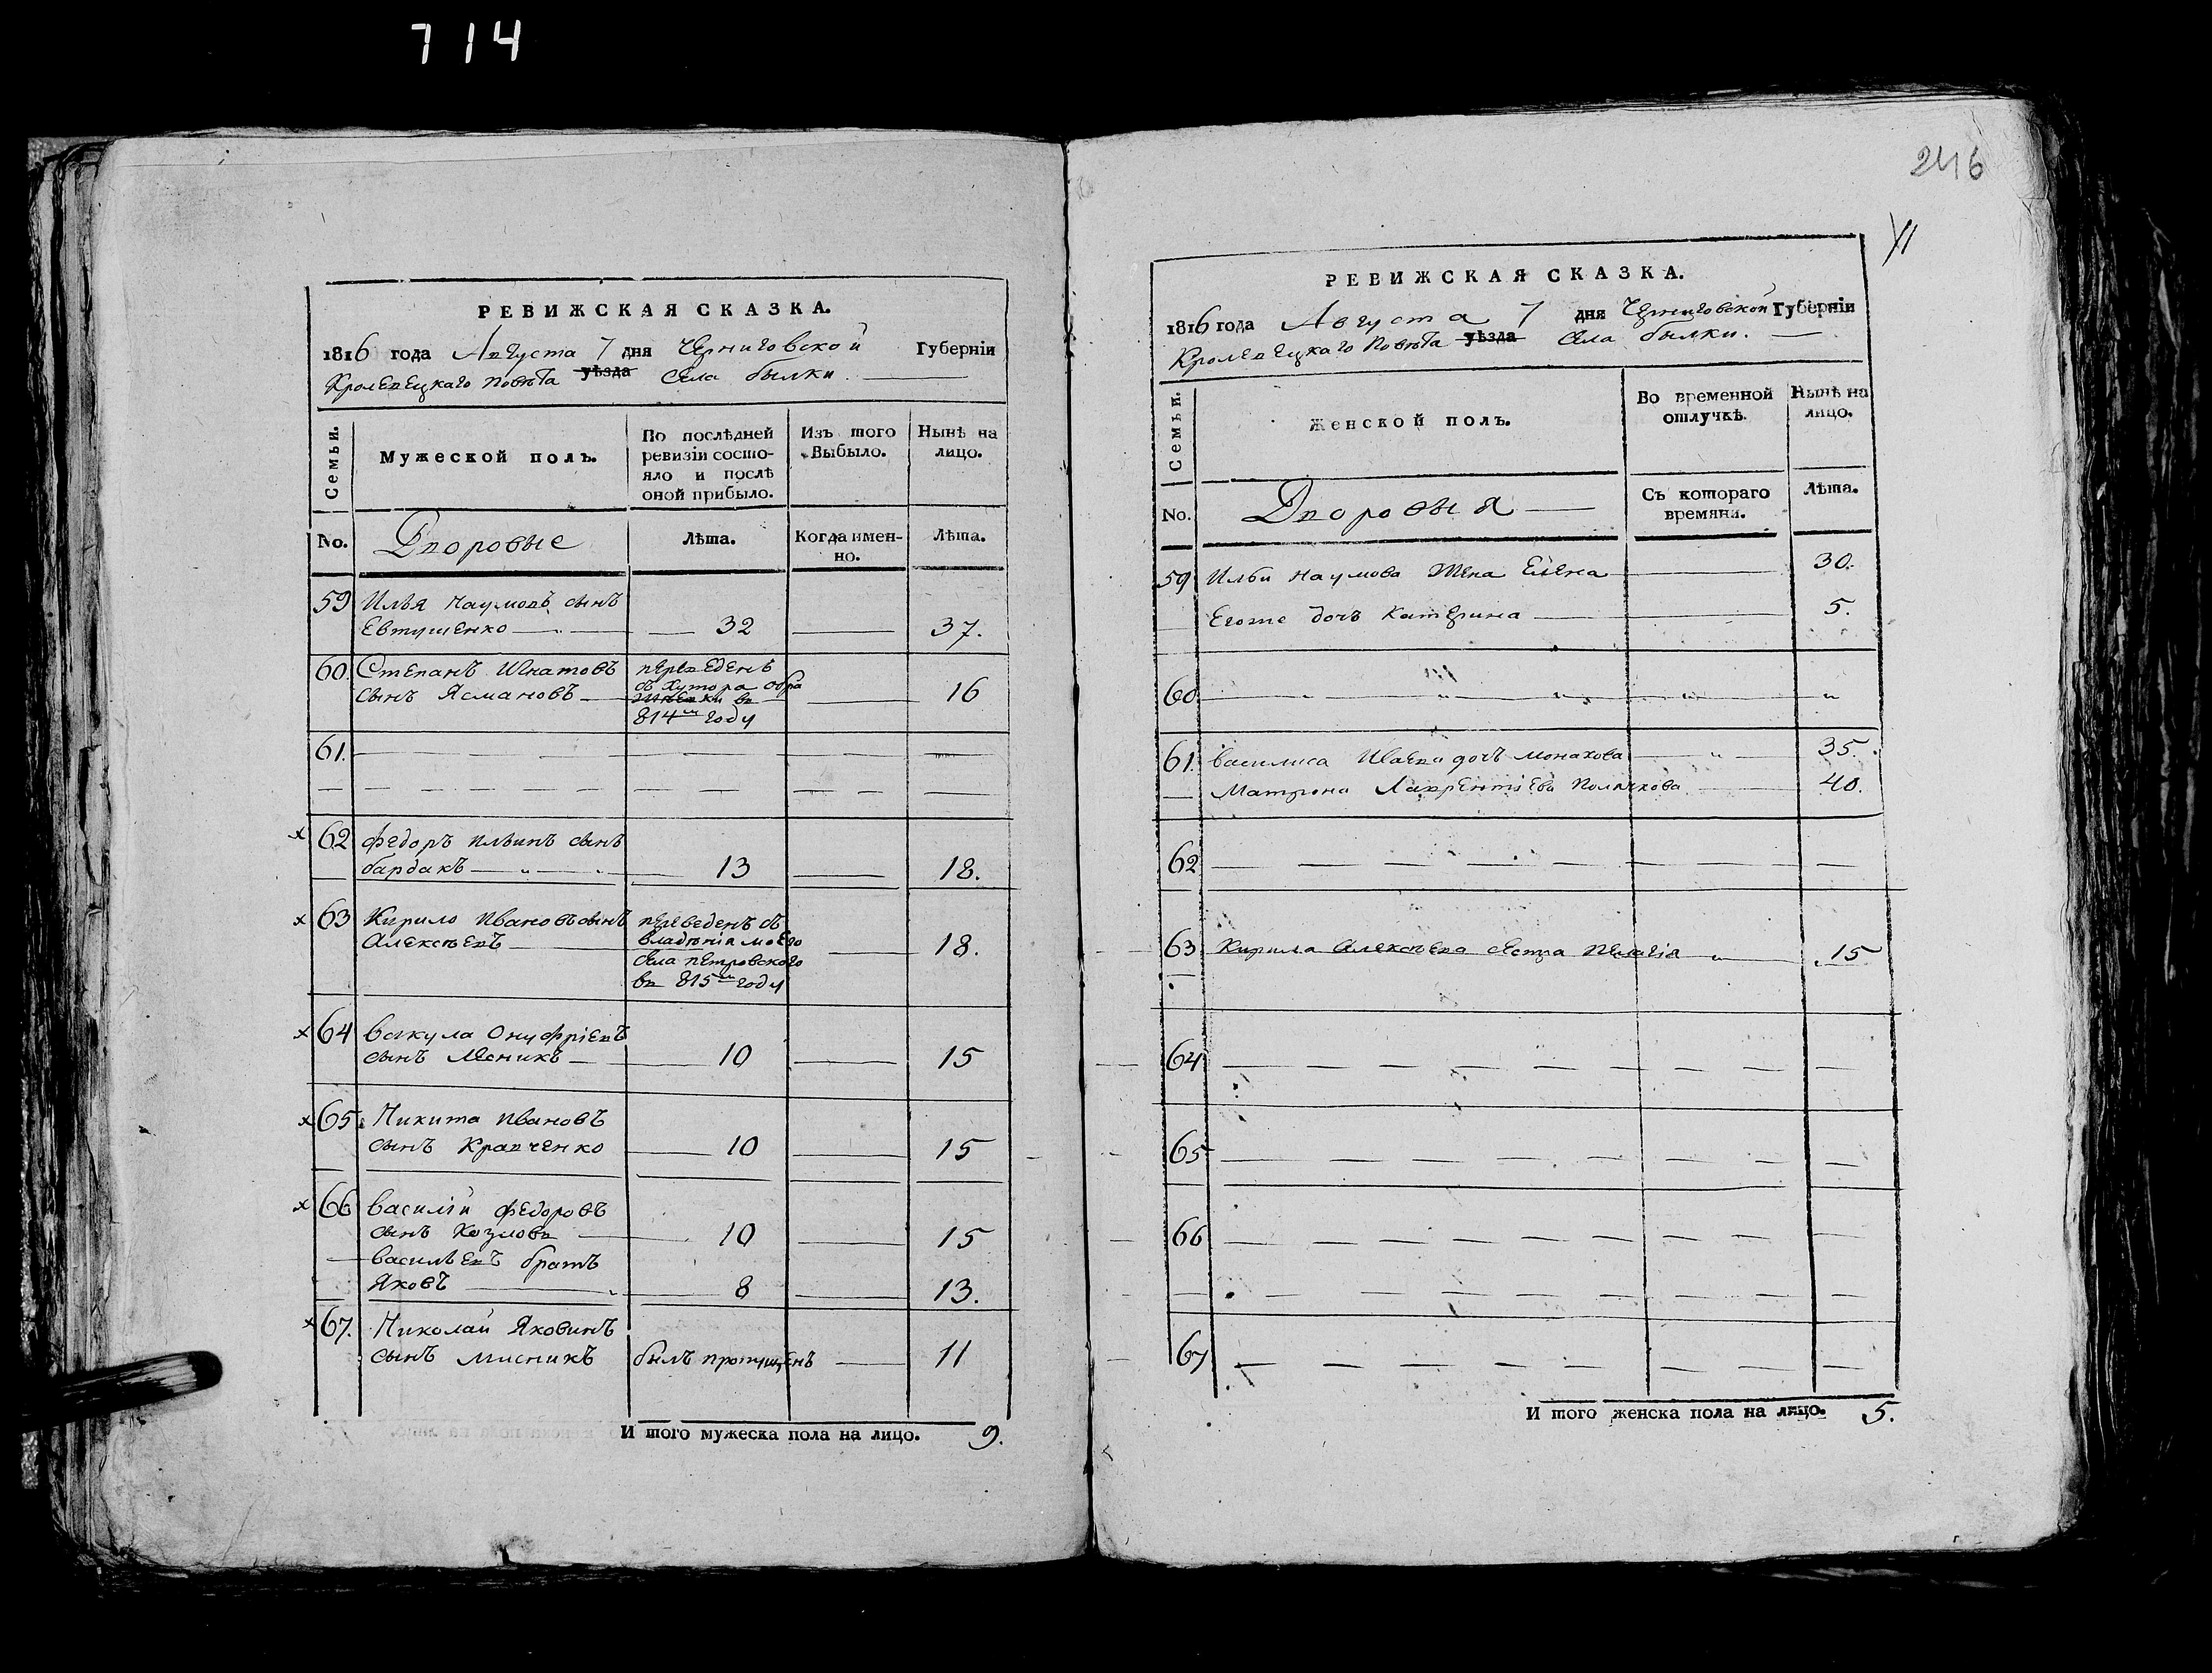 714
РЕВИЖСКАЯ СКАЗКА.
1816 года Августа 7 дня Черниговской Губерніи
Кролевецкаго повѣта уѣзда Села былки.
Семьи.
Мужеской полъ.
По послѣдней ревизіи состо-
яло и послѣ
оной прибыло.
Изъ того
Выбыло.
Нынѣ на
лицо.
No.
Дворовые
Лѣта.
Когда имен-
но.
Лѣта.
59 Илья Наумовъ сынъ
Евтушенко 32 37.
60. Степанъ Игнатовъ переведенъ
сынъ Ясмановъ съ хутора 16
814м году
61.
х 62 Федоръ Ильинъ сынъ
бардакъ 13 18.
х 63 Кирило Ивановъ сынъ переведенъ съ
Алексѣевъ владѣнія моего 18.
села петровского
въ 815м году
х 64 Вакула Онуфріевъ
сынъ 10 15
х 65. Никита Ивановъ
сынъ Кравченко 10 15
х 66 Василій Федоровъ
сынъ Козловъ 10 15
Васильевъ братъ
Яковъ 8 13.
х 67. Николай Яковинъ
сынъ мисникъ былъ пропущенъ 11
И того мужеска пола на лицо. 9.
246
РЕВИЖСКАЯ СКАЗКА.
1816 года Августа 7 дня Черниговской Губерніи
Кролевецкаго Повѣта уѣзда Села былки.
Семьи.
Женской полъ.
Во временной
отлучкѣ.
Нынѣ на
лицо.
No.
Дворовыя
Съ котораго
времяни.
Лѣта.
59 Ильи Наумова Жена Елена 30.
Егоже дочь Катерина 5.
60.
61. Василиса Иваева дочь монахова 35.
Матрона Лаврентіева Полякова 40.
62
63 Кирила Алексѣева сестра Пелагія 15
64
65
66
67
И того женска пола на лицо. 5.